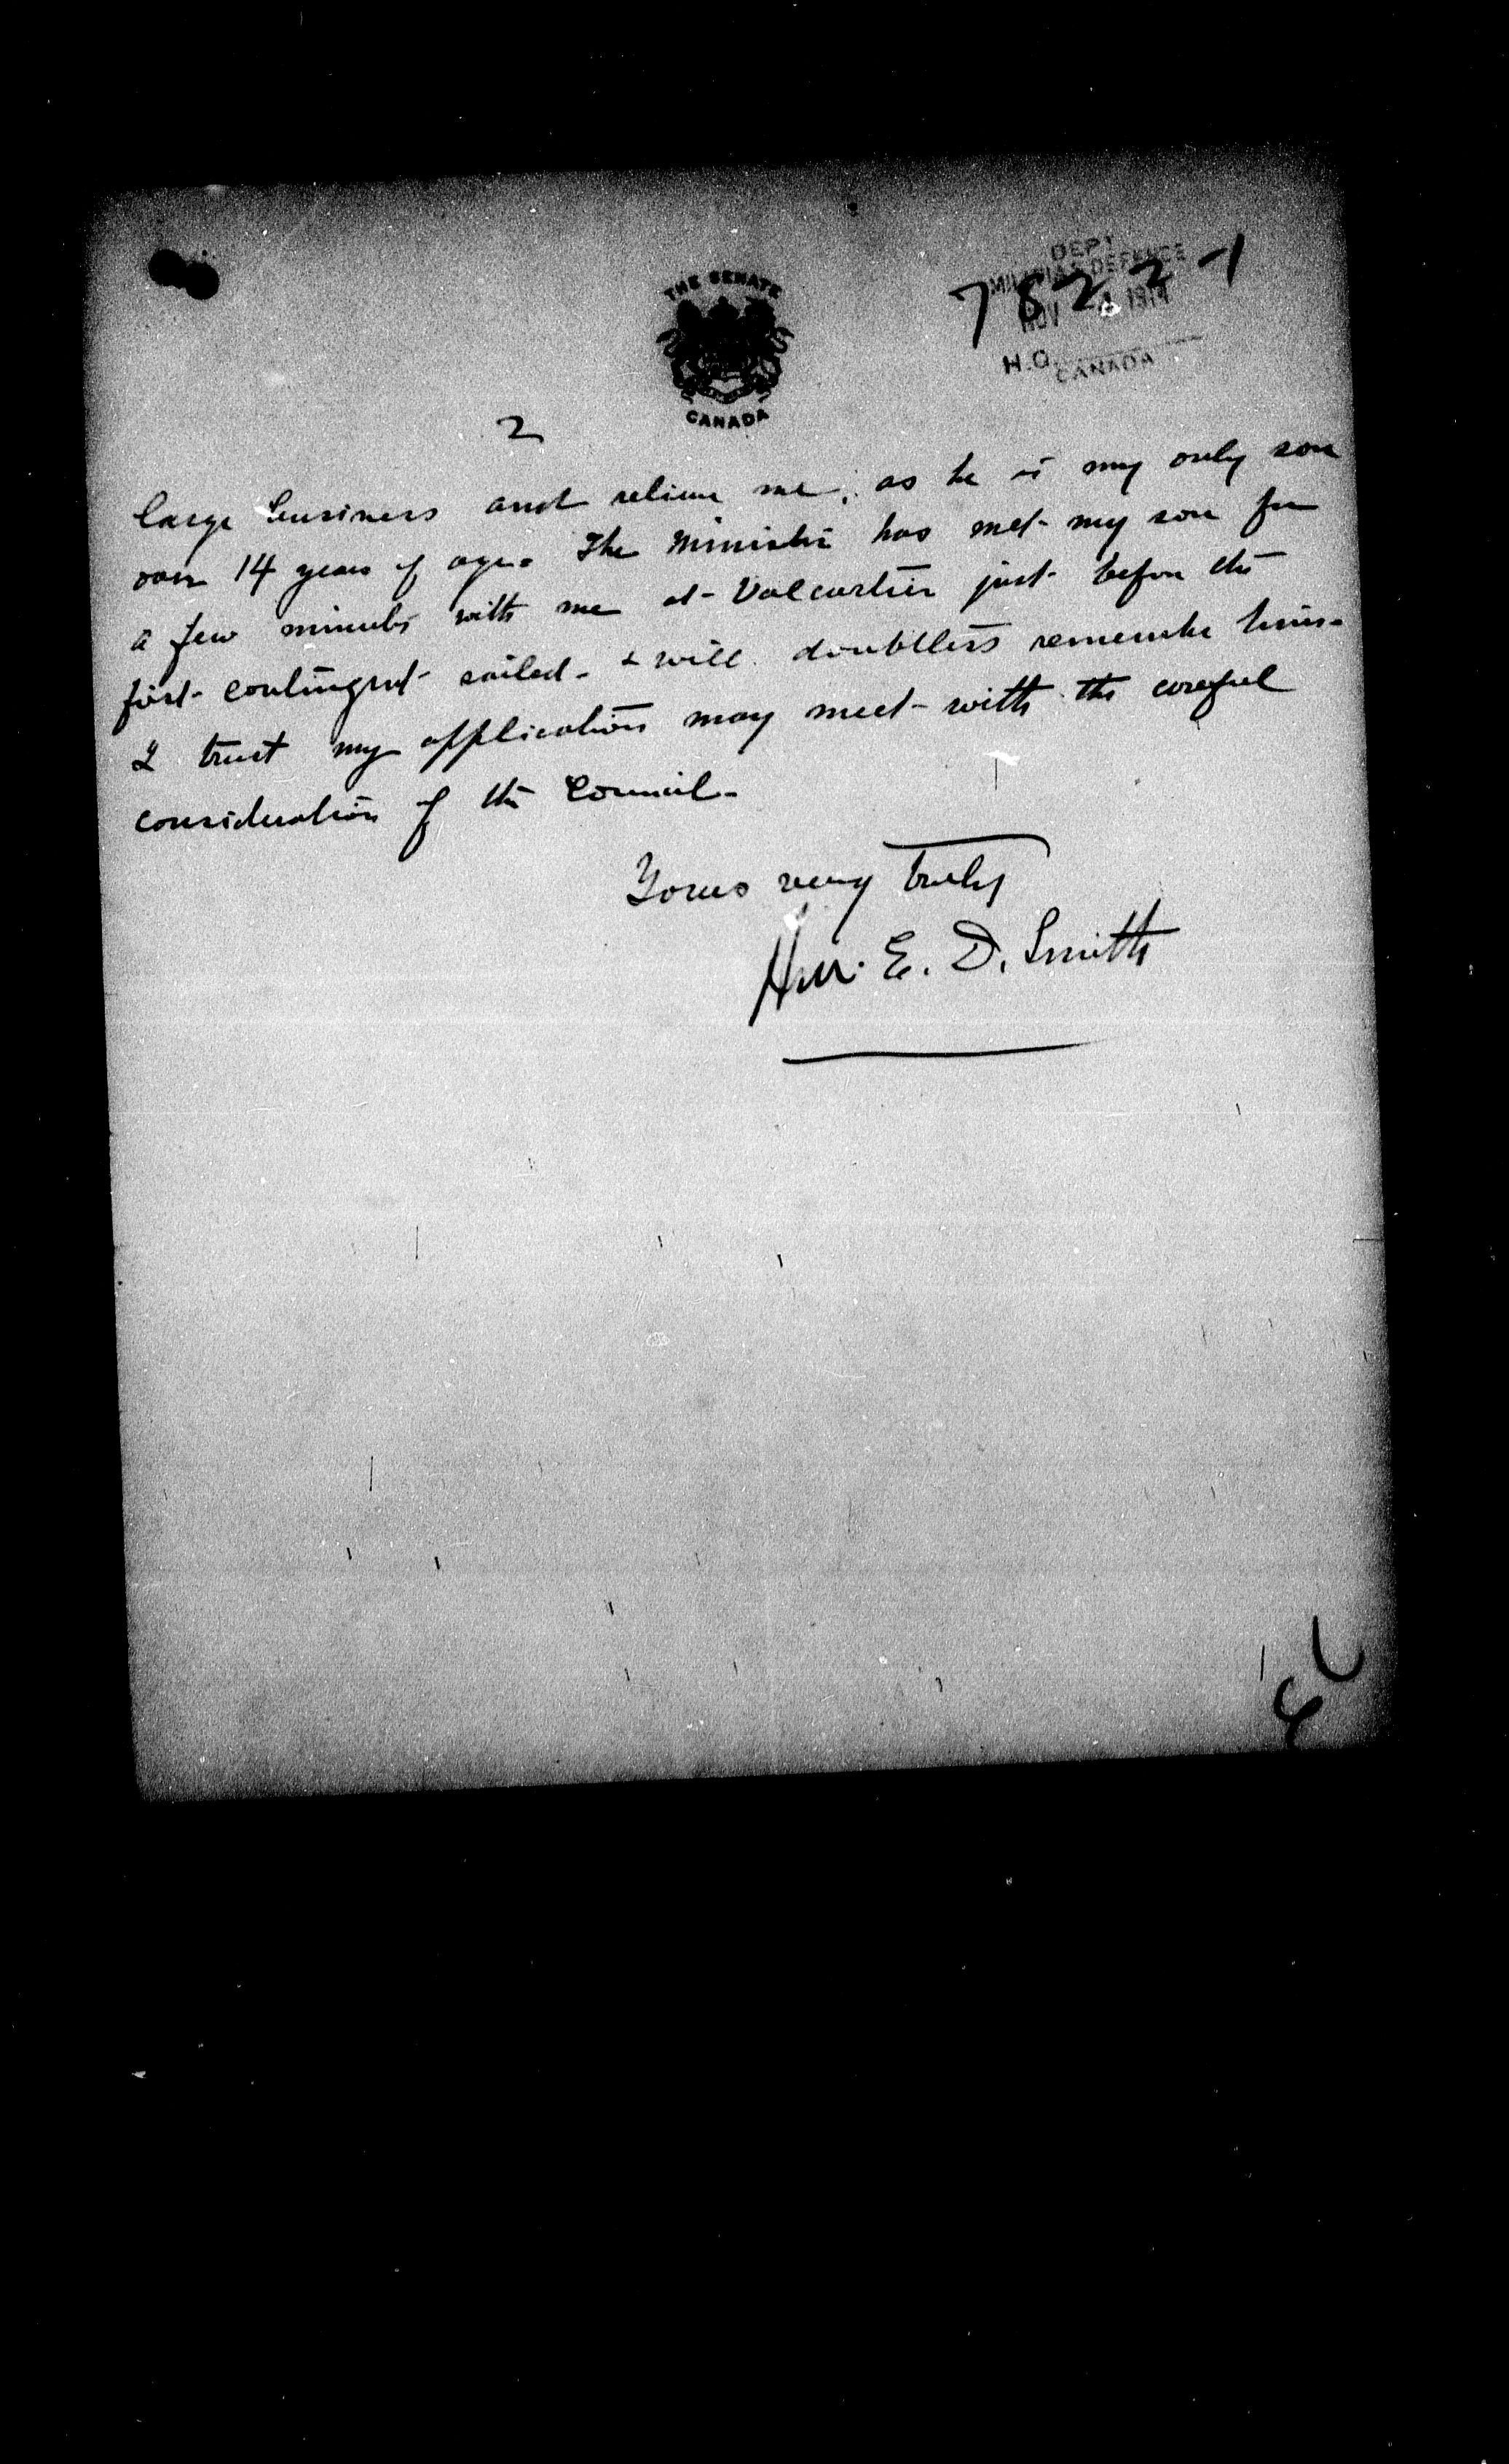 THE SENATE
CANADA
DEPT
MILITIA & DEFENCE
NOV 4 1914
H.Q.
CANADA
7822-1
2
large business and relieve me, as he is my only son
over 14 years of age. The Minister has met my son for
a few minutes with me at Valcartier just before the
first contingent sailed - & will doubtless remember him -
I trust my application may meet with the careful
consideration of the Council -
Yours very truly
Hon. E. D. Smith